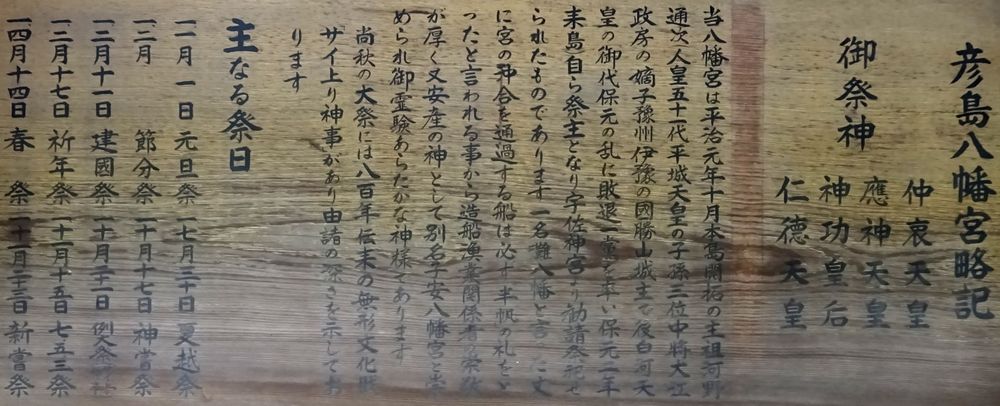 彦島八幡宮略記
御祭神
仲哀天皇
應神天皇
神功皇后
仁德天皇
当八幡宮は平治元年十月本島開拓の主祖河野
通次人皇五十一代平城天皇の子孫三位中将大江
政房の嫡子豫州伊豫の國勝山城主で後白河天
皇の御代保元の乱に敗退一軍を率い保元二年
来島自ら祭主となり宇佐神宮より勧請祭祀せ
られたものであります一名灘八幡と言
に宮の沖合を通過する船は必す半帆の礼をと
ったと言われる事から造船漁業関係者の崇敬
が厚く又安産の神として別名子安八幡宮と崇
められ御霊験あらたかな神様であります
尚秋の大祭には八百年伝来の無形文化財
サイ上り神事があり由諸の深さを示してお
ります
主なる祭日
一一月一日元旦祭一七月三十日夏越祭
一二月節分祭一十月十七日神嘗祭
一二月十一日建國祭一十月二十一日例祭
一二月十七日祈年祭一十一月十五日七五三祭
一四月十四日春祭一十一月二十三日新嘗祭